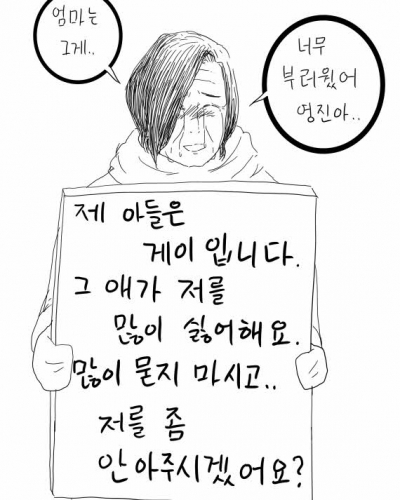 엄마는
그게..
너무
부러웠어
영진아..
제 아들은
게이입니다.
그 애가 저를
많이 싫어해요.
많이 묻지 마시고..
저를 좀
안아주시겠어요?